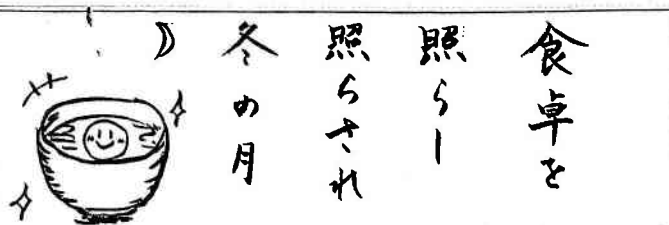 食卓を
照らし
照らされ
冬の月